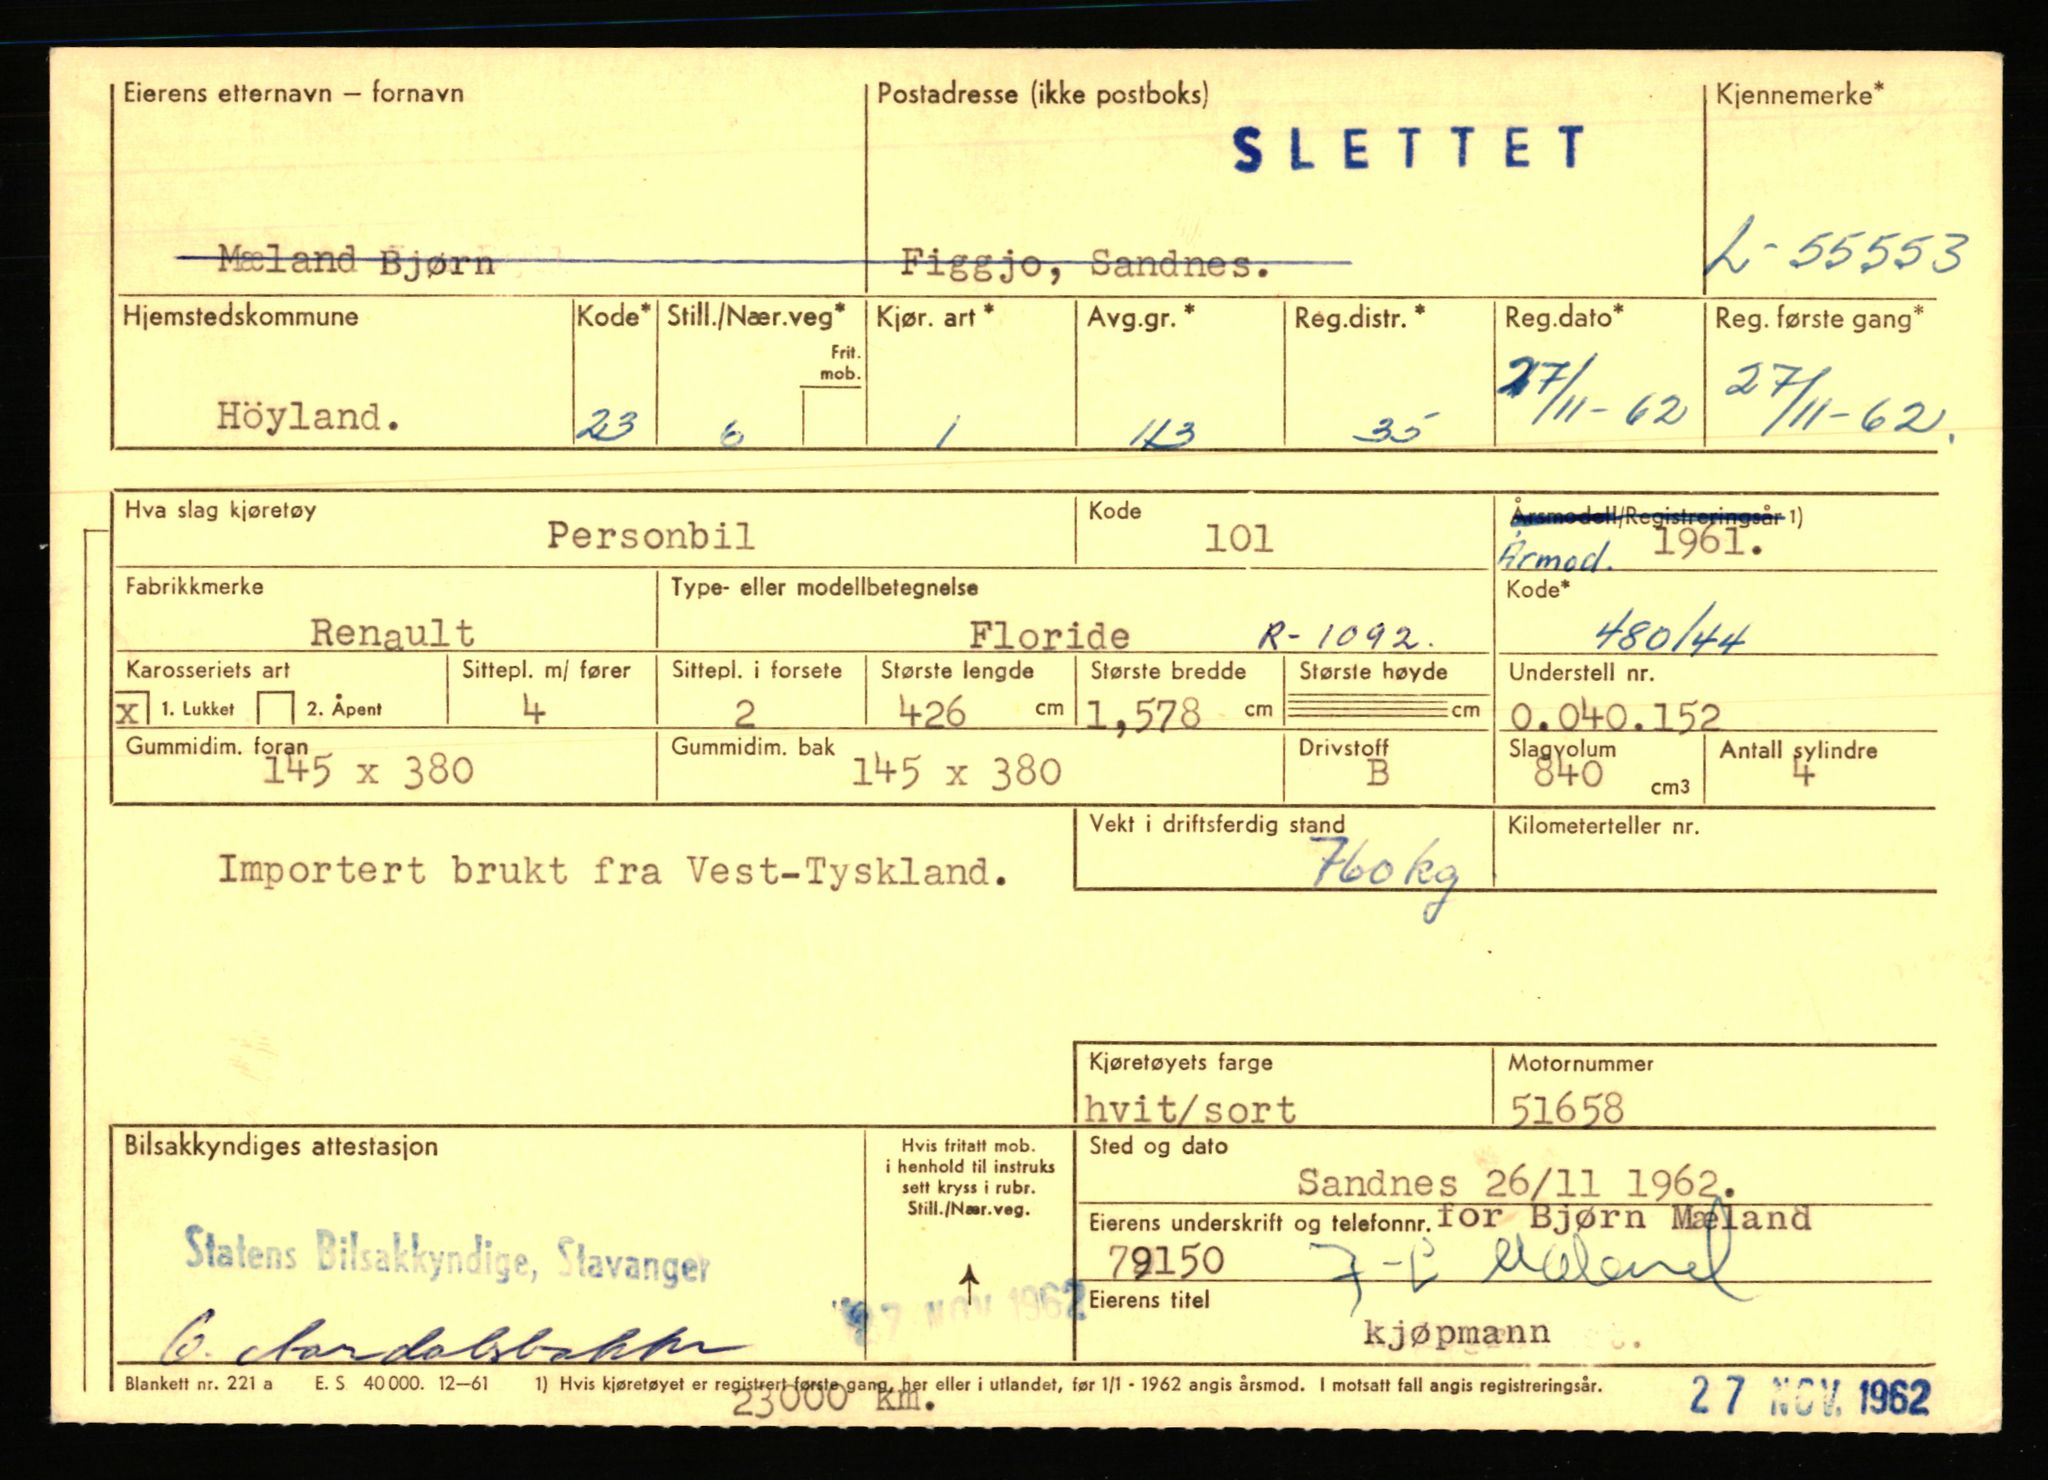 Eierens etternavn – fornavn
Postadresse (ikke postboks)
Kjennemerke*
SLETTET
Mæland Bjørn
Figgjo, Sandnes.
L-55553
Hjemstedskommune
Kode*
Still./Nær.veg*
Kjør. art*
Avg.gr.*
Reg.distr.*
Reg.dato*
Reg. første gang*
Frit.
mob.
Höyland.
23
6
1
113
35
27/11-62
27/11-62.
Hva slag kjøretøy
Personbil
Kode
101
Årsmodell/Registreringsår 1)
Årmod. 1961.
Fabrikkmerke
Renault
Type- eller modellbetegnelse
Floride R-1092.
Kode*
480/44
Karosseriets art
Sittepl. m/ fører
Sittepl. i forsete
Største lengde
Største bredde
Største høyde
Understell nr.
x 1. Lukket 2. Åpent
4
2
426 cm
1,578 cm
cm
0.040.152
Gummidim. foran
145 x 380
Gummidim. bak
145 x 380
Drivstoff
B
Slagvolum
840 cm3
Antall sylindre
4
Vekt i driftsferdig stand
760 kg
Kilometerteller nr.
Importert brukt fra Vest-Tyskland.
Kjøretøyets farge
hvit/sort
Motornummer
51658
Bilsakkyndiges attestasjon
Hvis fritatt mob.
i henhold til instruks
sett kryss i rubr.
Still./Nær.veg.
Sted og dato
Sandnes 26/11 1962.
Eierens underskrift og telefonnr. for Bjørn Mæland
79150
Mæland
Statens Bilsakkyndige, Stavanger
27 NOV 1962
Eierens titel
kjøpmann
Blankett nr. 221 a E. S 40 000. 12–61 1) Hvis kjøretøyet er registrert første gang, her eller i utlandet, før 1/1 - 1962 angis årsmod. I motsatt fall angis registreringsår.
23000 km.
27 NOV. 1962